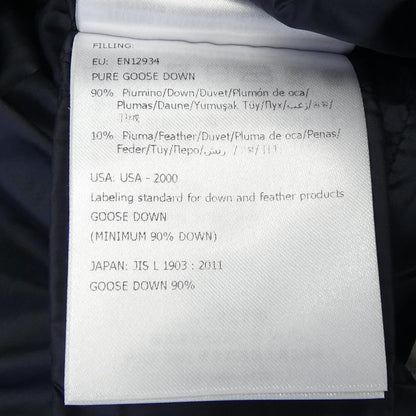 FILLING:
EU: EN12934
PURE GOOSE DOWN
90% Piumino/Down/Duvet/Plumón de oca/
Plumas/Daune/Yumuşak Tüy/Пух/زغب/
10% Piuma/Feather/Duvet/Pluma de oca/Penas/
Feder/Tüy/Перо/ريش/
USA: USA - 2000
Labeling standard for down and feather products
GOOSE DOWN
(MINIMUM 90% DOWN)
JAPAN: JIS L 1903 : 2011
GOOSE DOWN 90%